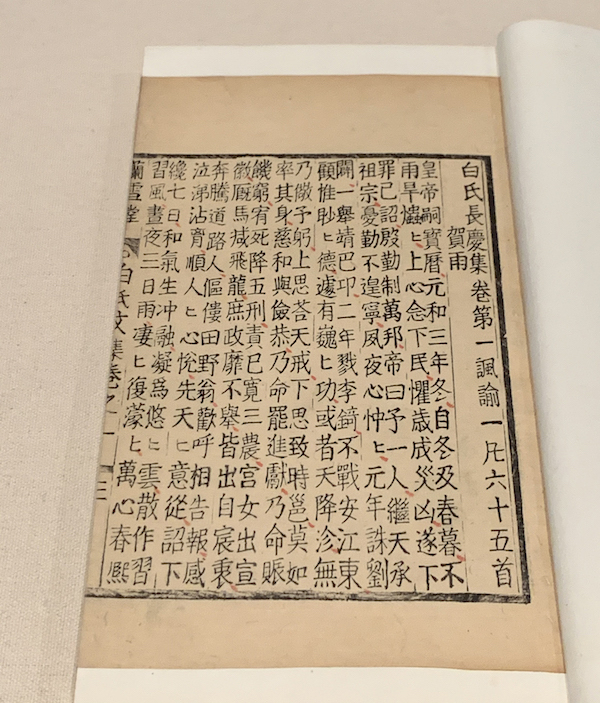 白氏長慶集卷第一諷諭一凡六十五首
賀雨
皇帝嗣寶曆元和三年冬自冬及春暮不
雨旱爞〻上心念下民懼歲成災凶遂下
罪己詔殷勤制萬邦帝曰予一人繼天承
祖宗憂勤不遑寧夙夜心忡〻元年誅劉
闢一舉靖巴邛二年戮李錡不戰安江東
顧惟眇〻德遽有巍〻功或者天降沴無
乃儆予躬上思荅天戒下思致時邕莫如
率其身慈和與儉恭乃命罷進獻乃命賑
饑窮宥死降五刑責己寬三農宮女出宣
徽厩馬減飛龍庶政靡不舉皆出自宸衷
奔騰道路人傴僂田野翁歡呼相告報感
泣涕沾胷順人〻心悅先天〻意從詔下
纔七日和氣生冲融凝為悠〻雲散作習
習風晝夜三日雨凄〻復濛〻萬心春熙
蘭雪堂 白氏文集卷之一